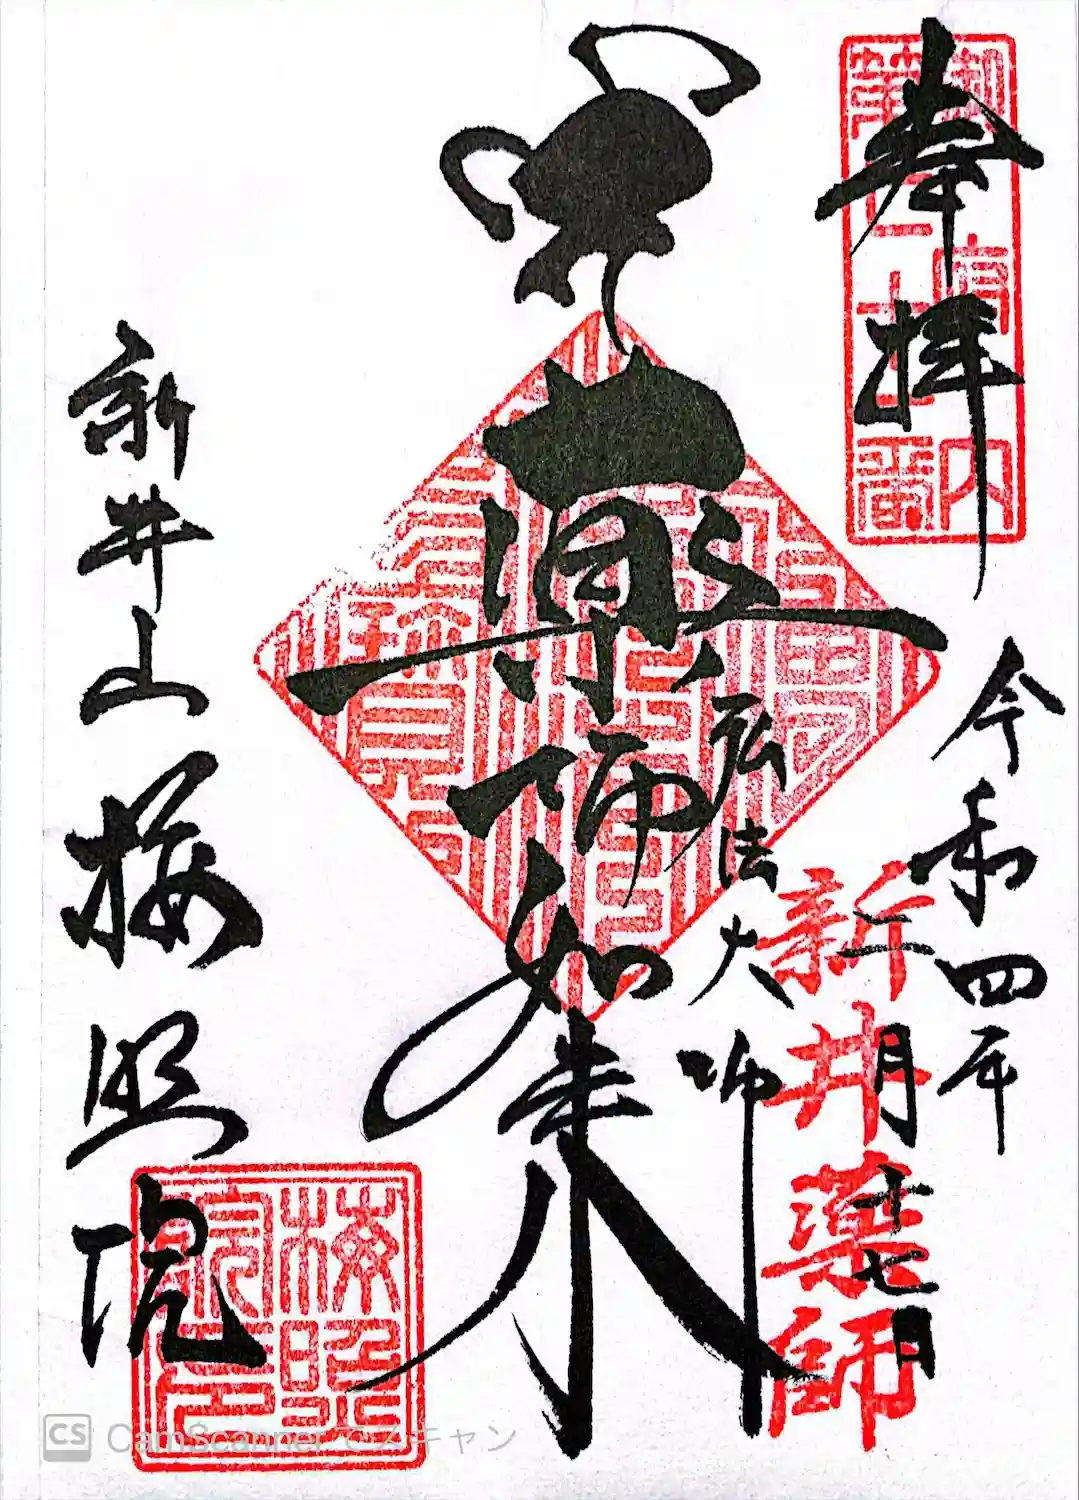 奉拝
御府内
第七十一番
令和四年
二月十七日
新井薬師
弘法大師
薬師如来
新井山梅照院
梅照
院印
CS CamScanner でスキャン